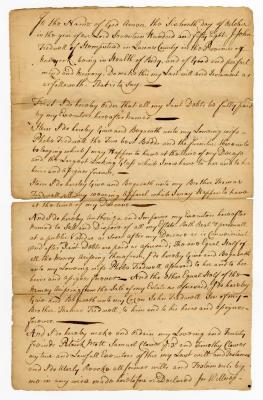 In the Name of God Amen, the Sixteenth day of October
in the year of our Lord Seventeen Hundred and fifty Eight. I John
Tredwell of Hempstead in Queens County in the Province of
New york, being in Health of Body, and of Good and perfect
mind and Memory, Do make this my Last will and Testament as
as followeth That is to Say
First I do hereby Order that all my Just Debts be fully paid
by my Executors hereafter named
Item I do hereby Give and Bequeath unto my Loving wife
Phebe Tredwell the Two best Beds and the furniture
belonging which I may Happen to have at the time of my Decease
and the Largest Looking Glass which I now have to her and to her
heirs and assigns forever.
Item I do hereby Give and Bequeath unto my Brother Thomas
Tredwell all my wearing Apparel which I may Happen to have
at the time of my Decease
And I do hereby authorize and Impower my Executors hereafter
named to Sell and Dispose of all my Estate both Real & personal
at a public Vendue as Soon after my Decease as is Convenient
and after Just Debts are paid as aforesaid, The one Equal Half of
all the Money arising therefrom, I do hereby Give and Bequeath
unto my Loving wife Phebe Tredwell aforesaid to her and to her
heirs and assigns forever And the Other Equal Half of the
Money arising from the Sale of my Estate as aforesaid, I do hereby
Give and Bequeath unto my Cozen John Tredwell Son of my
Brother Thomas Tredwell, to him and to his heirs and assigns
forever.
And I do hereby make and Ordain my Loving and Trusty
friends Patrick Mott Samuel Clowes and Timothy Clowes
my true and Lawfull Executors of this my Last will and Testament
And I do Utterly Revoke all former wills and Testaments by
me in any ways made heretofore or Declared